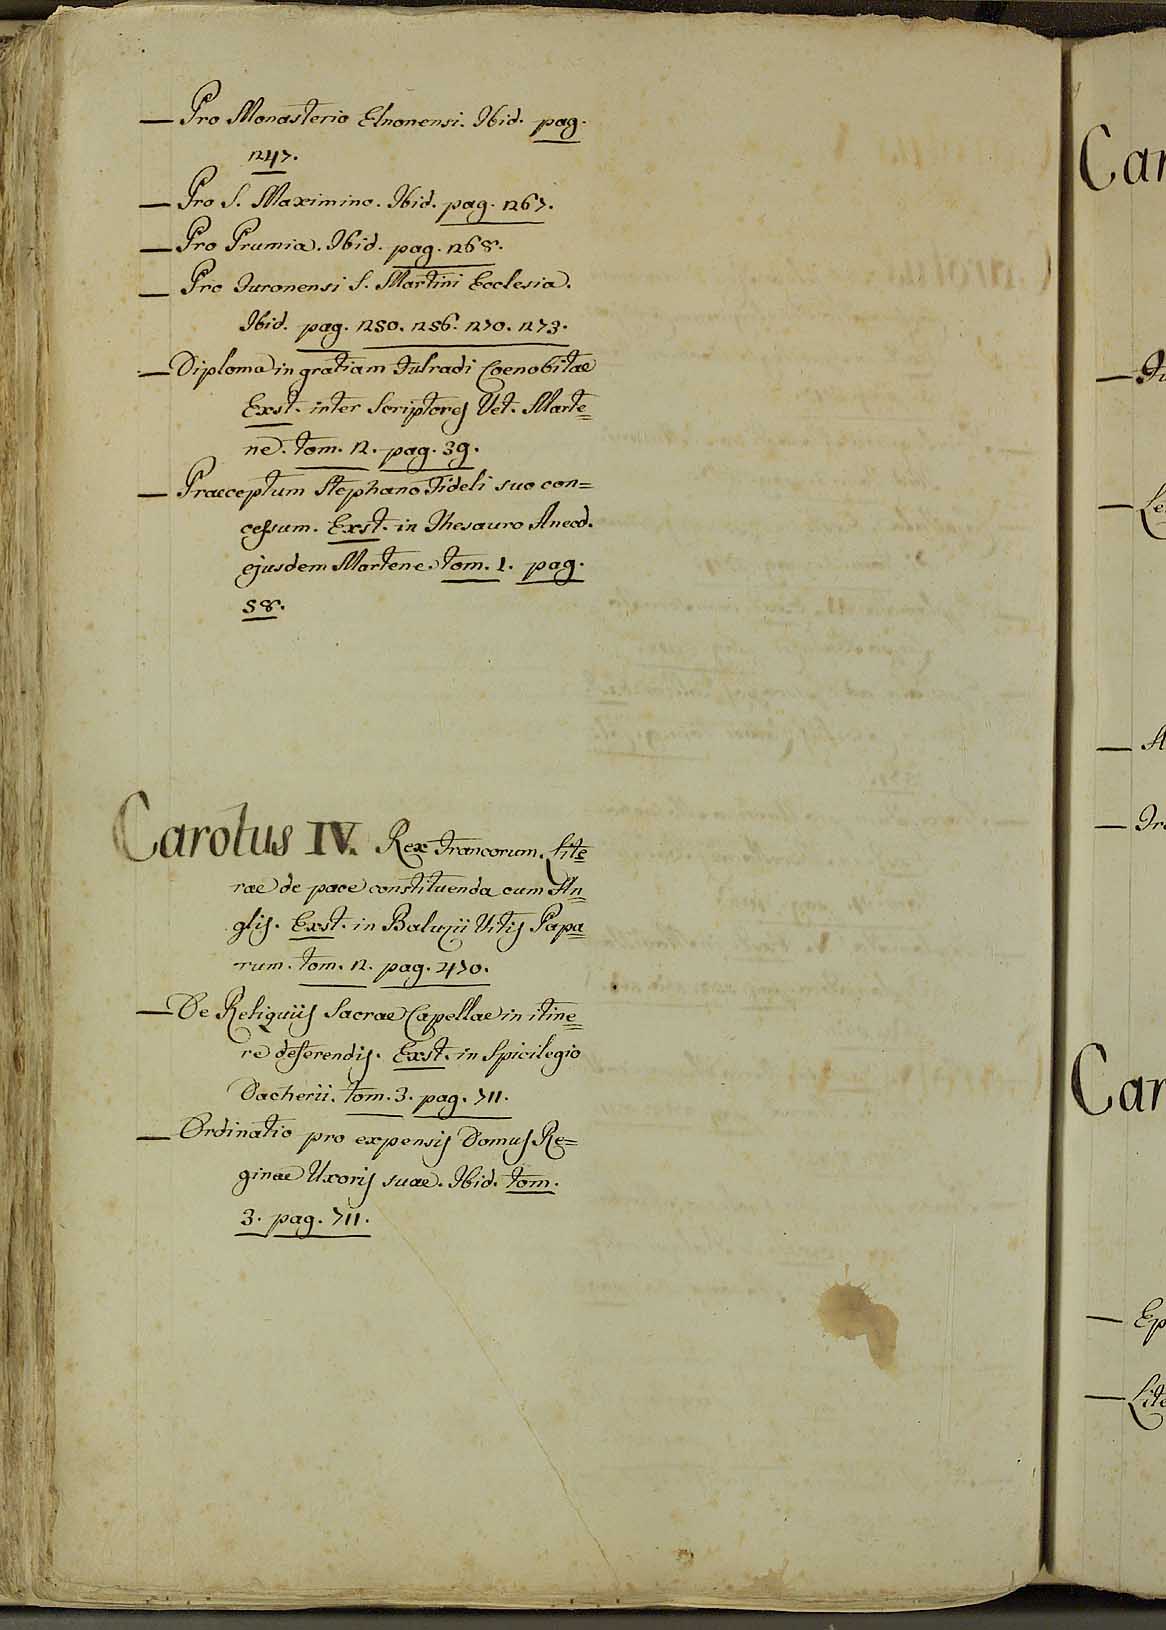 — Pro Monasterio Elnonensi. Ibid. pag.
247.
— Pro S. Maximino. Ibid. pag. 267.
— Pro Prumia. Ibid. pag. 268.
— Pro Turonensi S. Martini Ecclesia.
Ibid. pag. 250. 256. 270. 273.
— Diploma in gratiam Fulradi Coenobitae
Exst. inter Scriptores Vet. Marte=
ne. tom. 2. pag. 39.
— Praeceptum Stephano Fideli suo con=
cessum. Exst. in Thesauro Anecd.
ejusdem Martene. tom. 1. pag.
58.
Carolus IV. Rex Francorum. Lite=
rae de pace constituenda cum An=
glis. Exst. in Baluzii Vitis Papa=
rum. tom. 2. pag. 470.
— De Reliquiis Sacrae Capellae in itine=
re deferendis. Exst. in Spicilegio
Dacherii. tom. 3. pag. 711.
— Ordinatio pro expensis Domus Re=
ginae Uxoris suae. Ibid. tom.
3. pag. 711.
Car
Car
— Ep
— Lite